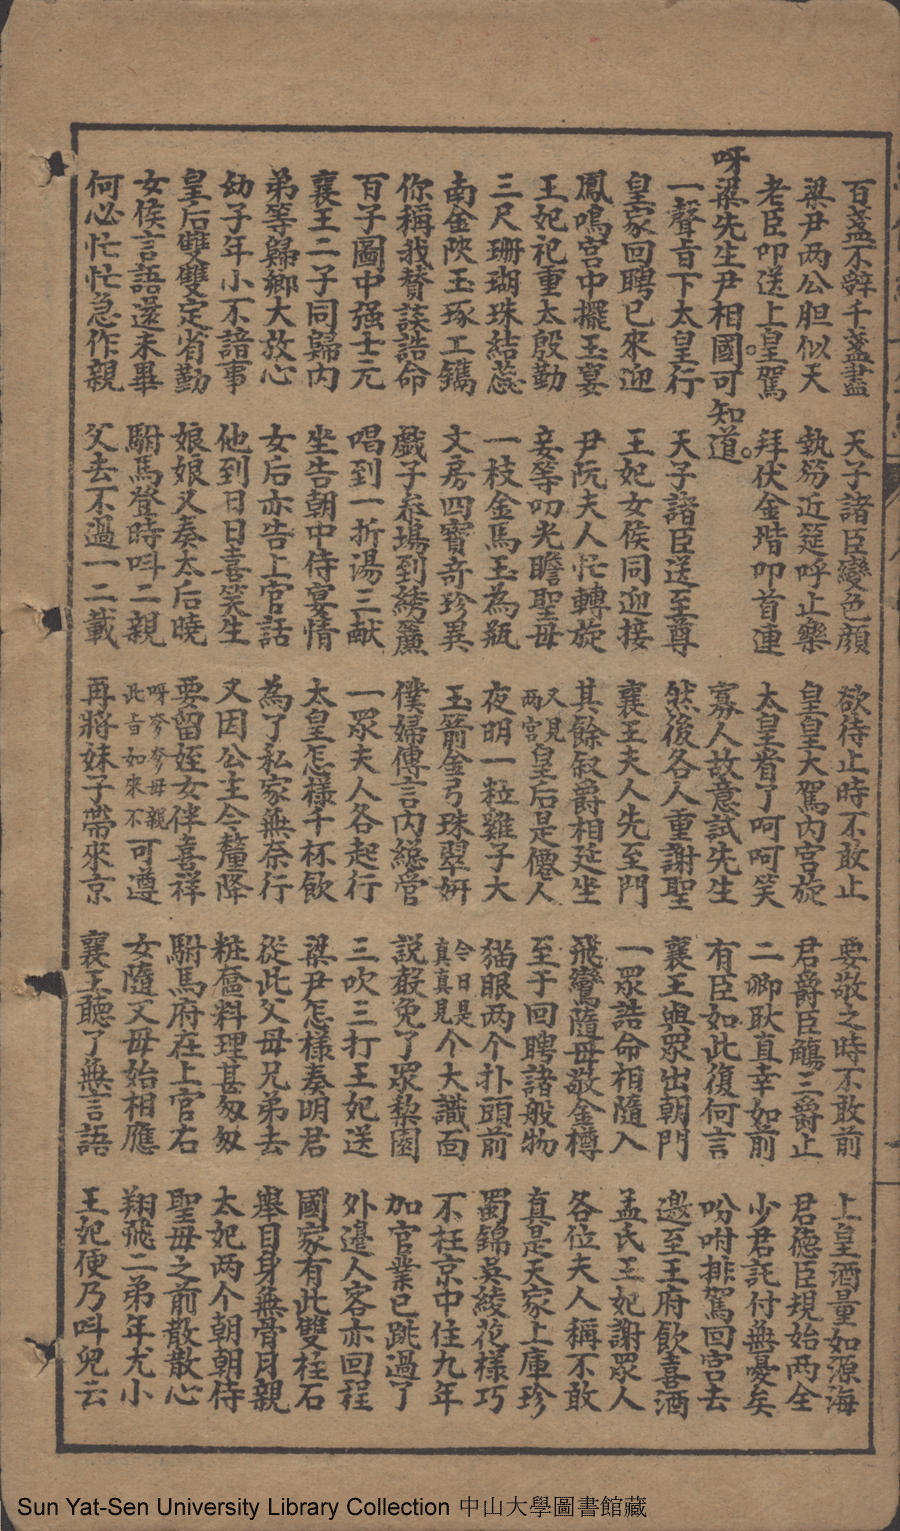 百盞不辭千盞盡 天子諸臣變色顏 欲待止時不敢止 要敬之時不敢前 上皇酒量如源海
梁尹两公胆似天 執笏近筵呼止樂 皇皇大駕内宫旋 君爵臣觴三爵止 君德臣規始两全
老臣叩送上皇駕 拜伏金堦叩首連 太皇看了呵呵笑 二卿耿直幸如前 少君託付無憂矣
呀梁先生尹相國。可知道。 寡人故意試先生 有臣如此復何言 吩咐排駕回宫去
一聲旨下太皇行 天子諸臣送至尊 然後各人重謝聖 襄王與眾出朝門 邀至王府飲喜酒
皇家回聘已來迎 王妃女侯同迎接 襄王夫人先至門 一眾誥命相隨入 孟氏王妃謝眾人
鳳鳴宫中擺玉宴 尹阮夫人忙轉旋 其餘叙爵相延坐 飛鸞隨母敬金樽 各位夫人稱不敢
王妃祀重太殷勤 妾等叨光瞻聖母 又見两宫皇后是僊人 至于回聘諸般物 真是天家上庫珍
三尺珊瑚珠結蕊 一枝金馬玉為瓶 夜明一粒雞子大 猫眼两个扑頭前 蜀錦吳綾花樣巧
南金陜玉琢工鐫 文房四寳奇珍異 玉箭金弓珠翠妍 今日是真真見个大識面 不枉京中住九年
你稱我賛談誥命 戲子叅塲到綉簾 僕婦傳言内縂管 説敖免了眾棃園 加官業已跳過了
百子圖中强士元 唱到一折湯三献 一眾夫人各起行 三吹三打王妃送 外邉人客亦回程
襄王二子同歸内 坐告朝中侍宴情 太皇怎樣千杯飲 梁尹怎樣奏明君 國家有此雙柱石
弟等歸鄉大放心 女后亦告上官話 為了私家無奈行 從此父母兄弟去 舉目身無骨月親
幼子年小不諳事 他到日日喜笑生 又因公主今釐降 粧奩料理甚匆匆 太妃两个朝朝侍
皇后雙雙定省勤 娘娘又奏太后曉 要留姪女伴喜祥 駙馬府在上官右 聖母之前散散心
女侯言語還未畢 駙馬登時呌二親 呀爹爹母親此旨如來不可遵 女隨父母始相應 翔飛二弟年尤小
何必忙忙急作親 父去不過一二載 再將妹子帶來京 襄王聽了無言語 王妃便乃呌兒云
Sun Yat-Sen University Library Collection 中山大學圖書館藏